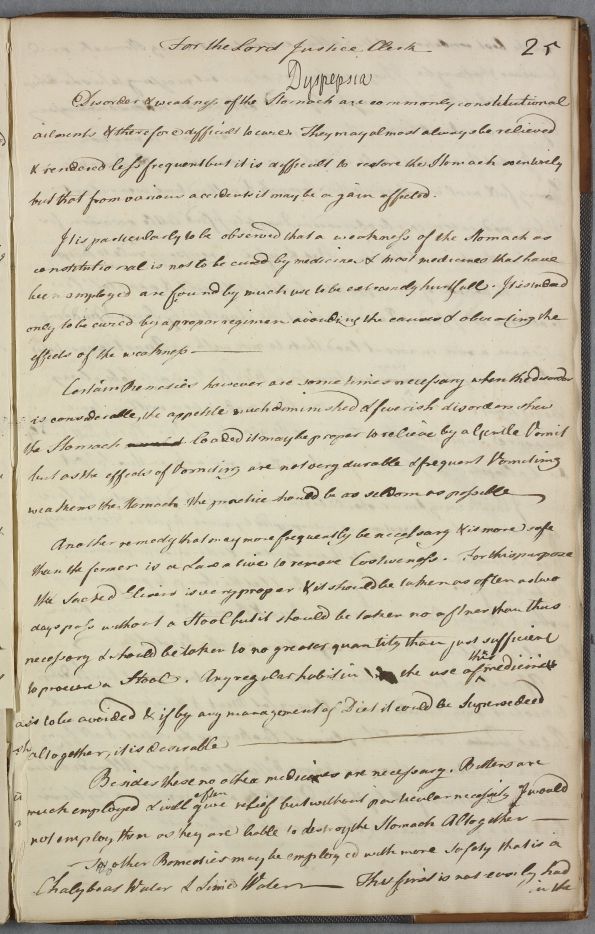 For the Lord Justice Clerk
25
Dyspepsia
Disorder & weakness of the Stomach are commonly constitutional
ailments & therefore difficult to cure. They may almost always be relieved
& rendered less frequent but it is difficult to restore the Stomach so entirely
but that from various accidents it may be again affected.
It is particularly to be observed that a weakness of the Stomach as
constitutional is not to be cured by medicines & most medicines that have
been employed are found by much use to be extreamly hurtfull. It is indeed
only to be cured by a proper regimen avoiding the causes & obviating the
effects of the weakness
Certain Remedies however are some times necessary when the disorder
is considerable, the appetite much diminished & feverish disorders shew
the Stomach loaded it may be proper to relieve by a Gentle Vomit
but as the effects of Vomiting are not very durable & frequent Vomiting
weakens the Stomach the practice should be as seldom as possible
Another remedy that may more frequently be necessary & is more safe
than the former is a Laxative to remove Costiveness. For this purpose
the Sacred Elixir is very proper & it should be taken as often as two
days pass without a Stool but it should be taken no oftner than thus
necessary & should be taken to no greater quantity than just sufficient
to procure a Stool. Any regular habit in the use of this medicine
is to be avoided & if by any management of Diet it could be Superseded
altogether, it is desirable
Besides these no other medicines are necessary. Bitters are
much employed & will often give relief but without particular necessity I would
not employ them as they are liable to destroy the Stomach Altogether
Two other Remedies may be employed with more safety that is a
Chalybeat Water & Lime Water This first is not easily had
in the